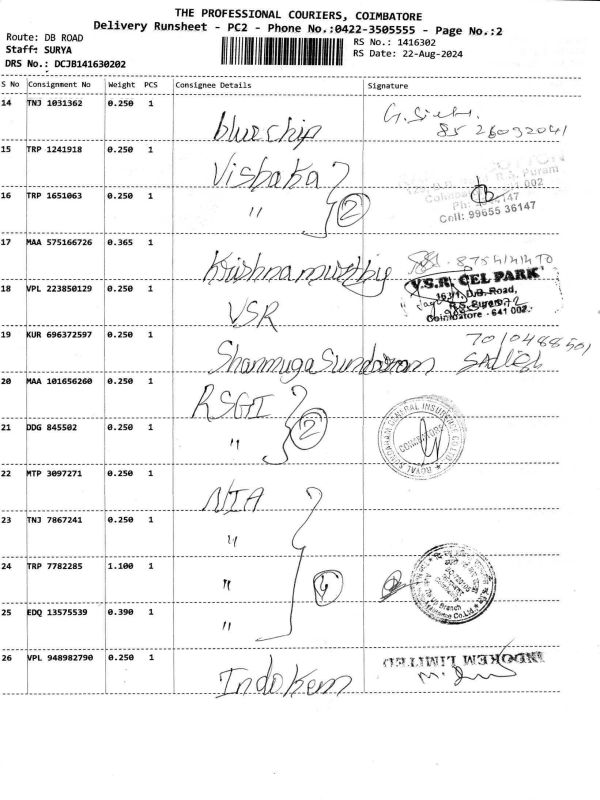 THE PROFESSIONAL COURIERS, COIMBATORE
Delivery Runsheet - PC2 - Phone No.:0422-3505555 - Page No.:2
Route: DB ROAD
Staff: SURYA
DRS No.: DCJB141630202
RS No.: 1416302
RS Date: 22-Aug-2024
S No Consignment No Weight PCS Consignee Details Signature
14 TNJ 1031362 0.250 1 blue chip
85 26032041
15 TRP 1241918 0.250 1 Vishaka
R.S. Puram
16 TRP 1651063 0.250 1 " 2
Cell: 99655 36147
17 MAA 575166726 0.365 1 Krishnamurthy
18 VPL 223850129 0.250 1 VSR
V.S.R. CEL PARK
D.B. Road,
R.S. Puram
Coimbatore - 641 002.
19 KUR 696372597 0.250 1 ShanmugaSundaram
7010488501
20 MAA 101656260 0.250 1 RSGI
21 DDG 845502 0.250 1 " 2
ROYAL SUNDARAM GENERAL INSURANCE CO LTD
COIMBATORE
22 MTP 3097271 0.250 1 NIA
23 TNJ 7867241 0.250 1 "
24 TRP 7782285 1.100 1 " 4
25 EDQ 13575539 0.390 1 "
26 VPL 948982790 0.250 1 Indokem
INDOKEM LIMITED